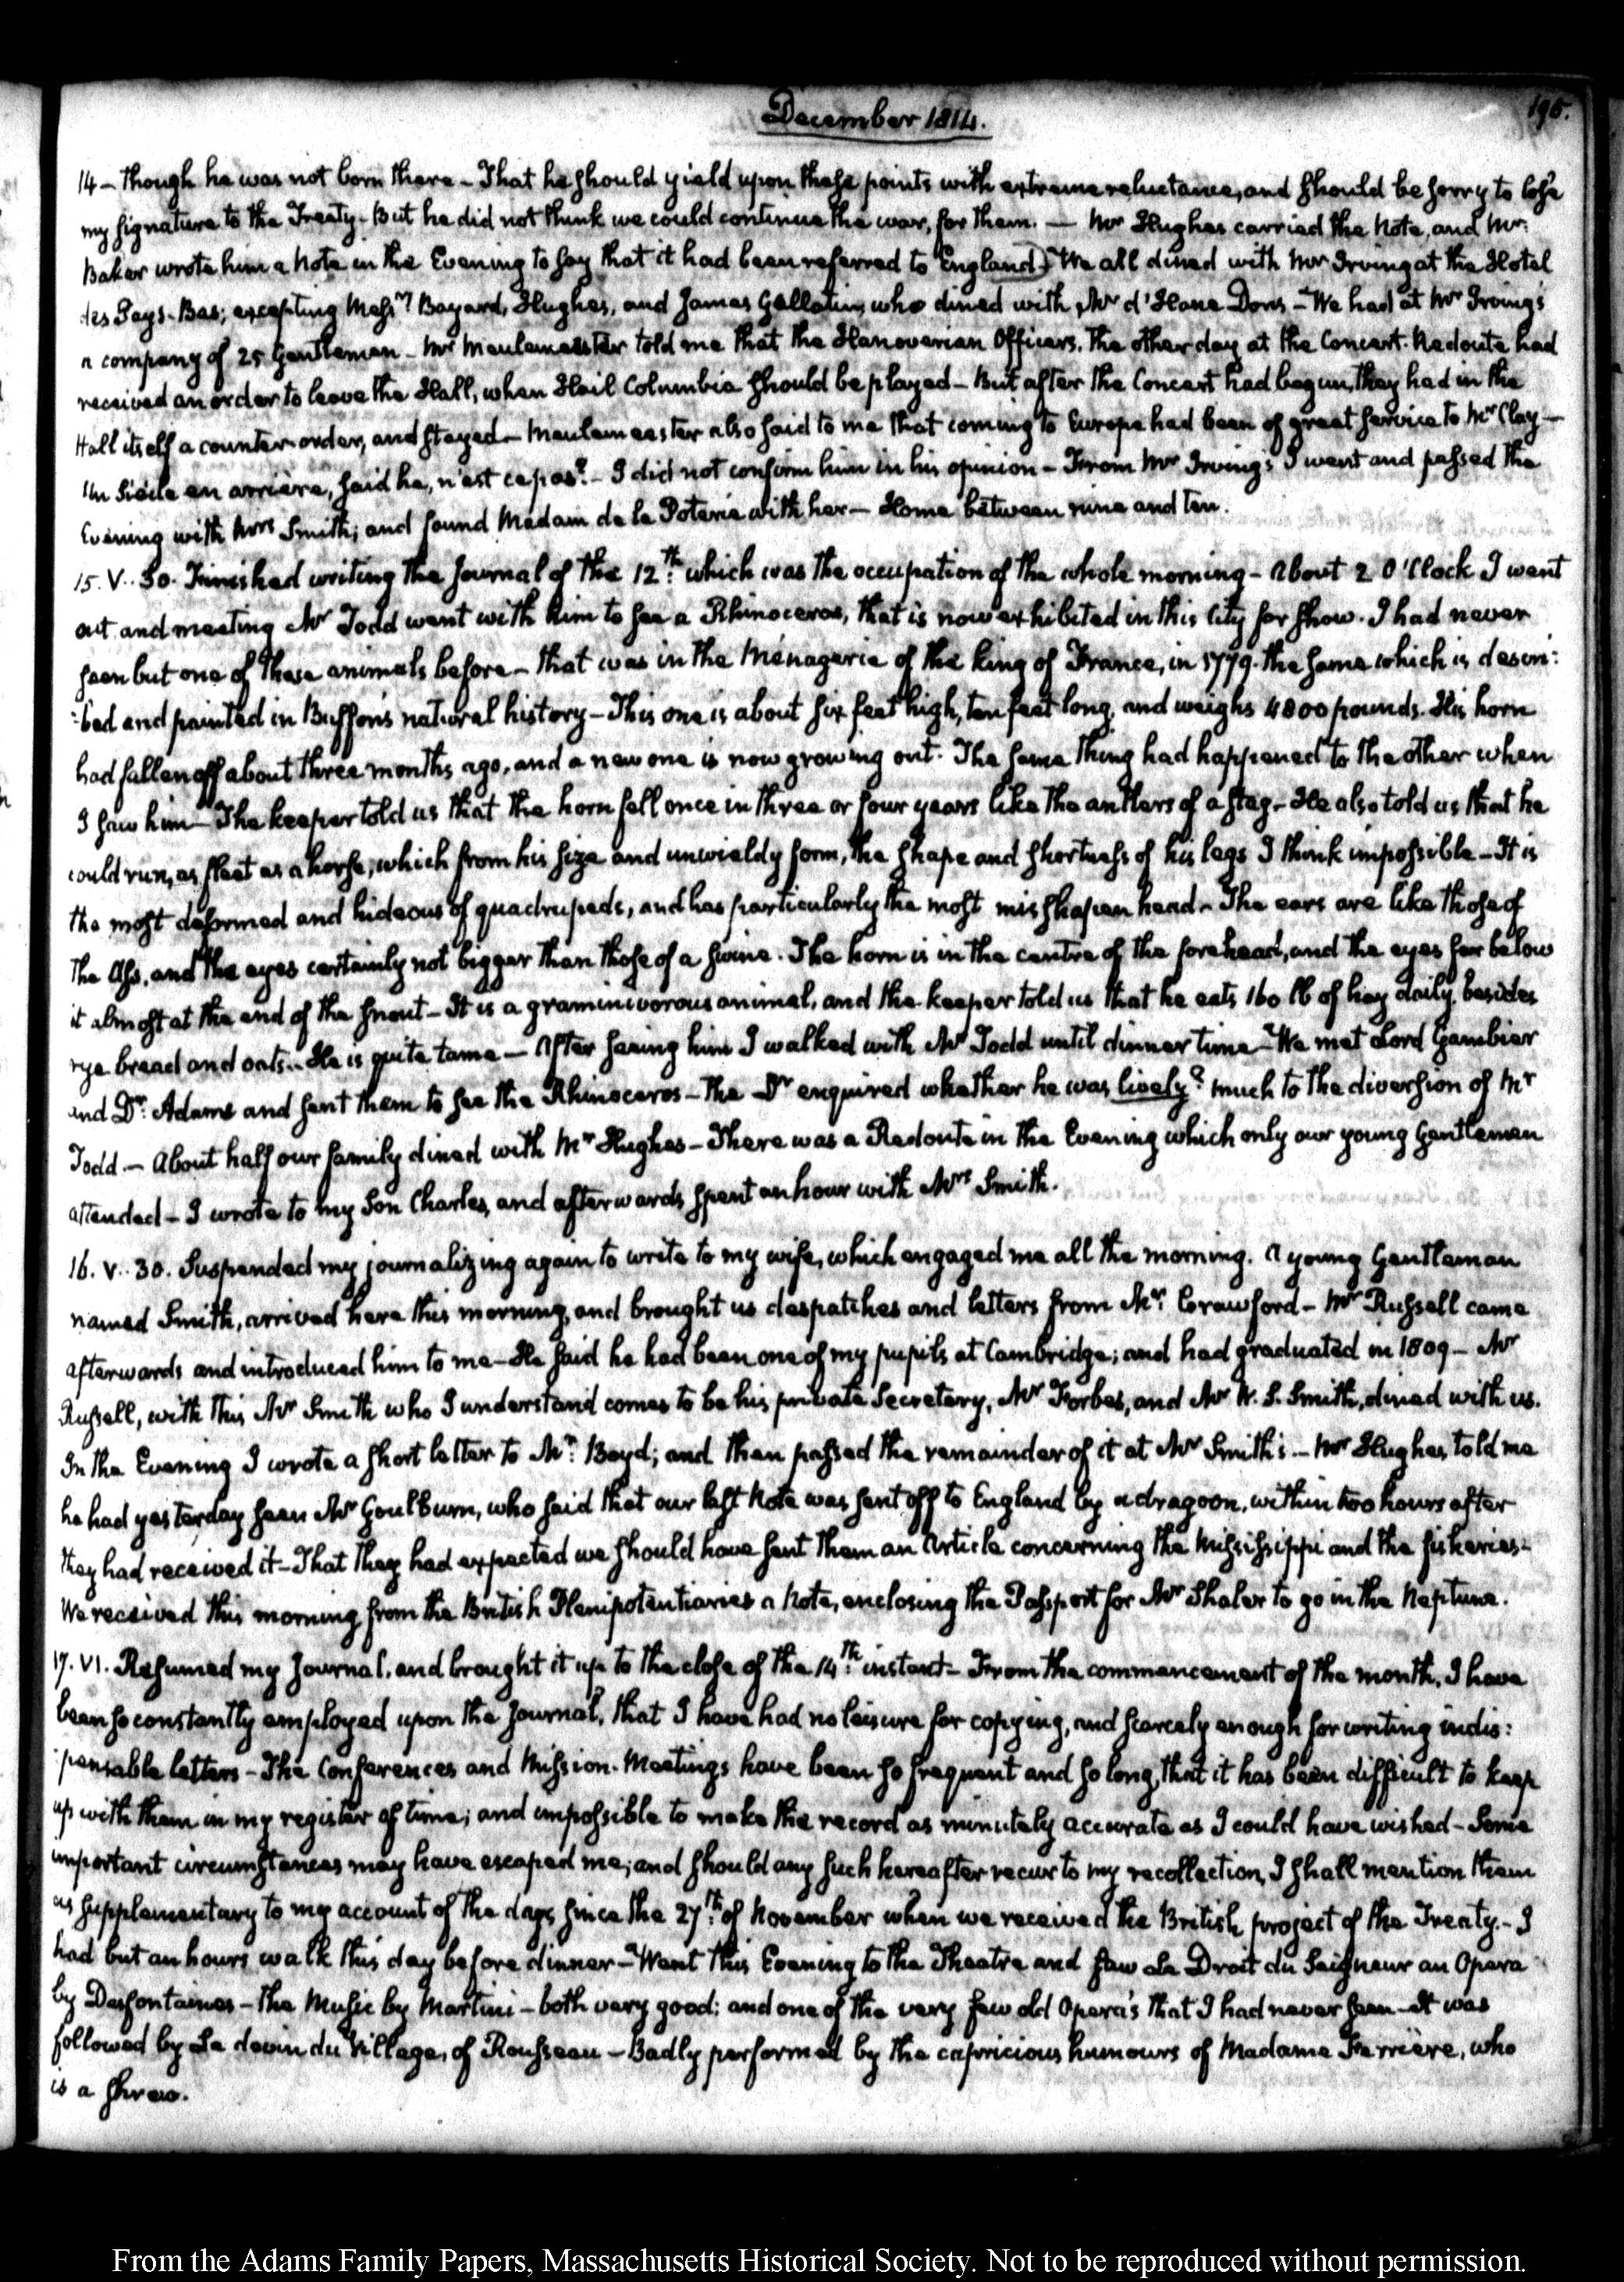 December 1814.
195.
14 – though he was not born there – That he should yield upon these points with extreme reluctance, and should be sorry to lose
my signature to the Treaty – But he did not think we could continue the war, for them. — Mr Hughes carried the Note, and Mr:
Baker wrote him a Note in the Evening to say that it had been referred to England) We all dined with Mr Irving at the Hotel
des Pays-Bas; excepting Messrs Bayard, Hughes, and James Gallatin, who dined with Mr d'Hane Dons – We had at Mr Irving's
a company of 25 Gentlemen – Mr Meulemeester told me that the Hanoverian Officers, the other day at the Concert-Redoute had
received an order to leave the Hall, when Hail Columbia should be played – But after the Concert had begun, they had in the
Hall itself a counter order, and stayed – Meulemeester also said to me that coming to Europe had been of great service to Mr Clay –
Un Siècle en arrière, said he, n'est ce pas? – I did not confirm him in his opinion – From Mr Irving's I went and passed the
Evening with Mrs Smith; and found Madam de la Poterie with her – Home between nine and ten.
15. V..30. Finished writing the Journal of the 12th: which was the occupation of the whole morning – About 2 O'Clock I went
out and meeting Mr Todd went with him to see a Rhinoceros, that is now exhibited in this City for show. I had never
seen but one of these animals before – that was in the Menagerie of the king of France, in 1779. the same which is descri:
:bed and painted in Buffon's natural history – This one is about six feet high, ten feet long, and weighs 4800 pounds. His horn
had fallen off about three months ago, and a new one is now growing out. The same thing had happened to the other when
I saw him – The keeper told us that the horn fell once in three or four years like the antlers of a stag – He also told us that he
could run, as fleet as a horse, which from his size and unwieldy form, the shape and shortness of his legs I think impossible – It is
the most deformed and hideous of quadrupeds, and has particularly the most misshapen head – The ears are like those of
the Ass, and the eyes certainly not bigger than those of a swine. The horn is in the centre of the forehead, and the eyes far below
it almost at the end of the snout – It is a graminivorous animal, and the keeper told us that he eats 160 lb of hay daily, besides
rye bread and oats.. He is quite tame – After seeing him I walked with Mr Todd until dinner time – We met Lord Gambier
and Dr: Adams and sent them to see the Rhinoceros – The Dr enquired whether he was lively? much to the diversion of Mr
Todd. – About half our family dined with Mr Hughes – There was a Redoute in the Evening which only our young Gentlemen
attended – I wrote to my Son Charles, and afterwards spent an hour with Mrs Smith.
16. V..30. Suspended my journalizing again to write to my wife, which engaged me all the morning. A young Gentleman
named Smith, arrived here this morning, and brought us despatches and letters from Mr: Crawford – Mr Russell came
afterwards and introduced him to me – He said he had been one of my pupils at Cambridge; and had graduated in 1809 – Mr
Russell, with this Mr Smith who I understand comes to be his private Secretary, Mr Forbes, and Mr W. S. Smith, dined with us.
In the Evening I wrote a short letter to Mr: Boyd; and then passed the remainder of it at Mr Smith's – Mr Hughes told me
he had yesterday seen Mr Goulburn, who said that our last Note was sent off to England by a dragoon, within two hours after
they had received it – That they had expected we should have sent them an Article concerning the Mississippi and the fisheries –
We received this morning from the British Plenipotentiaries a Note, enclosing the Passport for Mr Shaler to go in the Neptune.
17. VI. Resumed my Journal, and brought it up to the close of the 14th: instant – From the commencement of the month, I have
been so constantly employed upon the Journal, that I have had no leisure for copying, and scarcely enough for writing indis:
:pensable letters – The Conferences and Mission-Meetings have been so frequent and so long, that it has been difficult to keep
up with them in my register of time; and impossible to make the record as minutely accurate as I could have wished – Some
important circumstances may have escaped me; and should any such hereafter recur to my recollection, I shall mention them
as supplementary to my account of the days since the 27th: of November when we received the British project of the Treaty. – I
had but an hours walk this day before dinner – Went this Evening to the Theatre and saw Le Droit du Seigneur an Opera
by Desfontaines – the Music by Martini – both very good; and one of the very few old Opera's that I had never seen – It was
followed by Le devin du Village, of Rousseau – Badly performed by the capricious humours of Madame Ferrière, who
is a shrew.
From the Adams Family Papers, Massachusetts Historical Society. Not to be reproduced without permission.